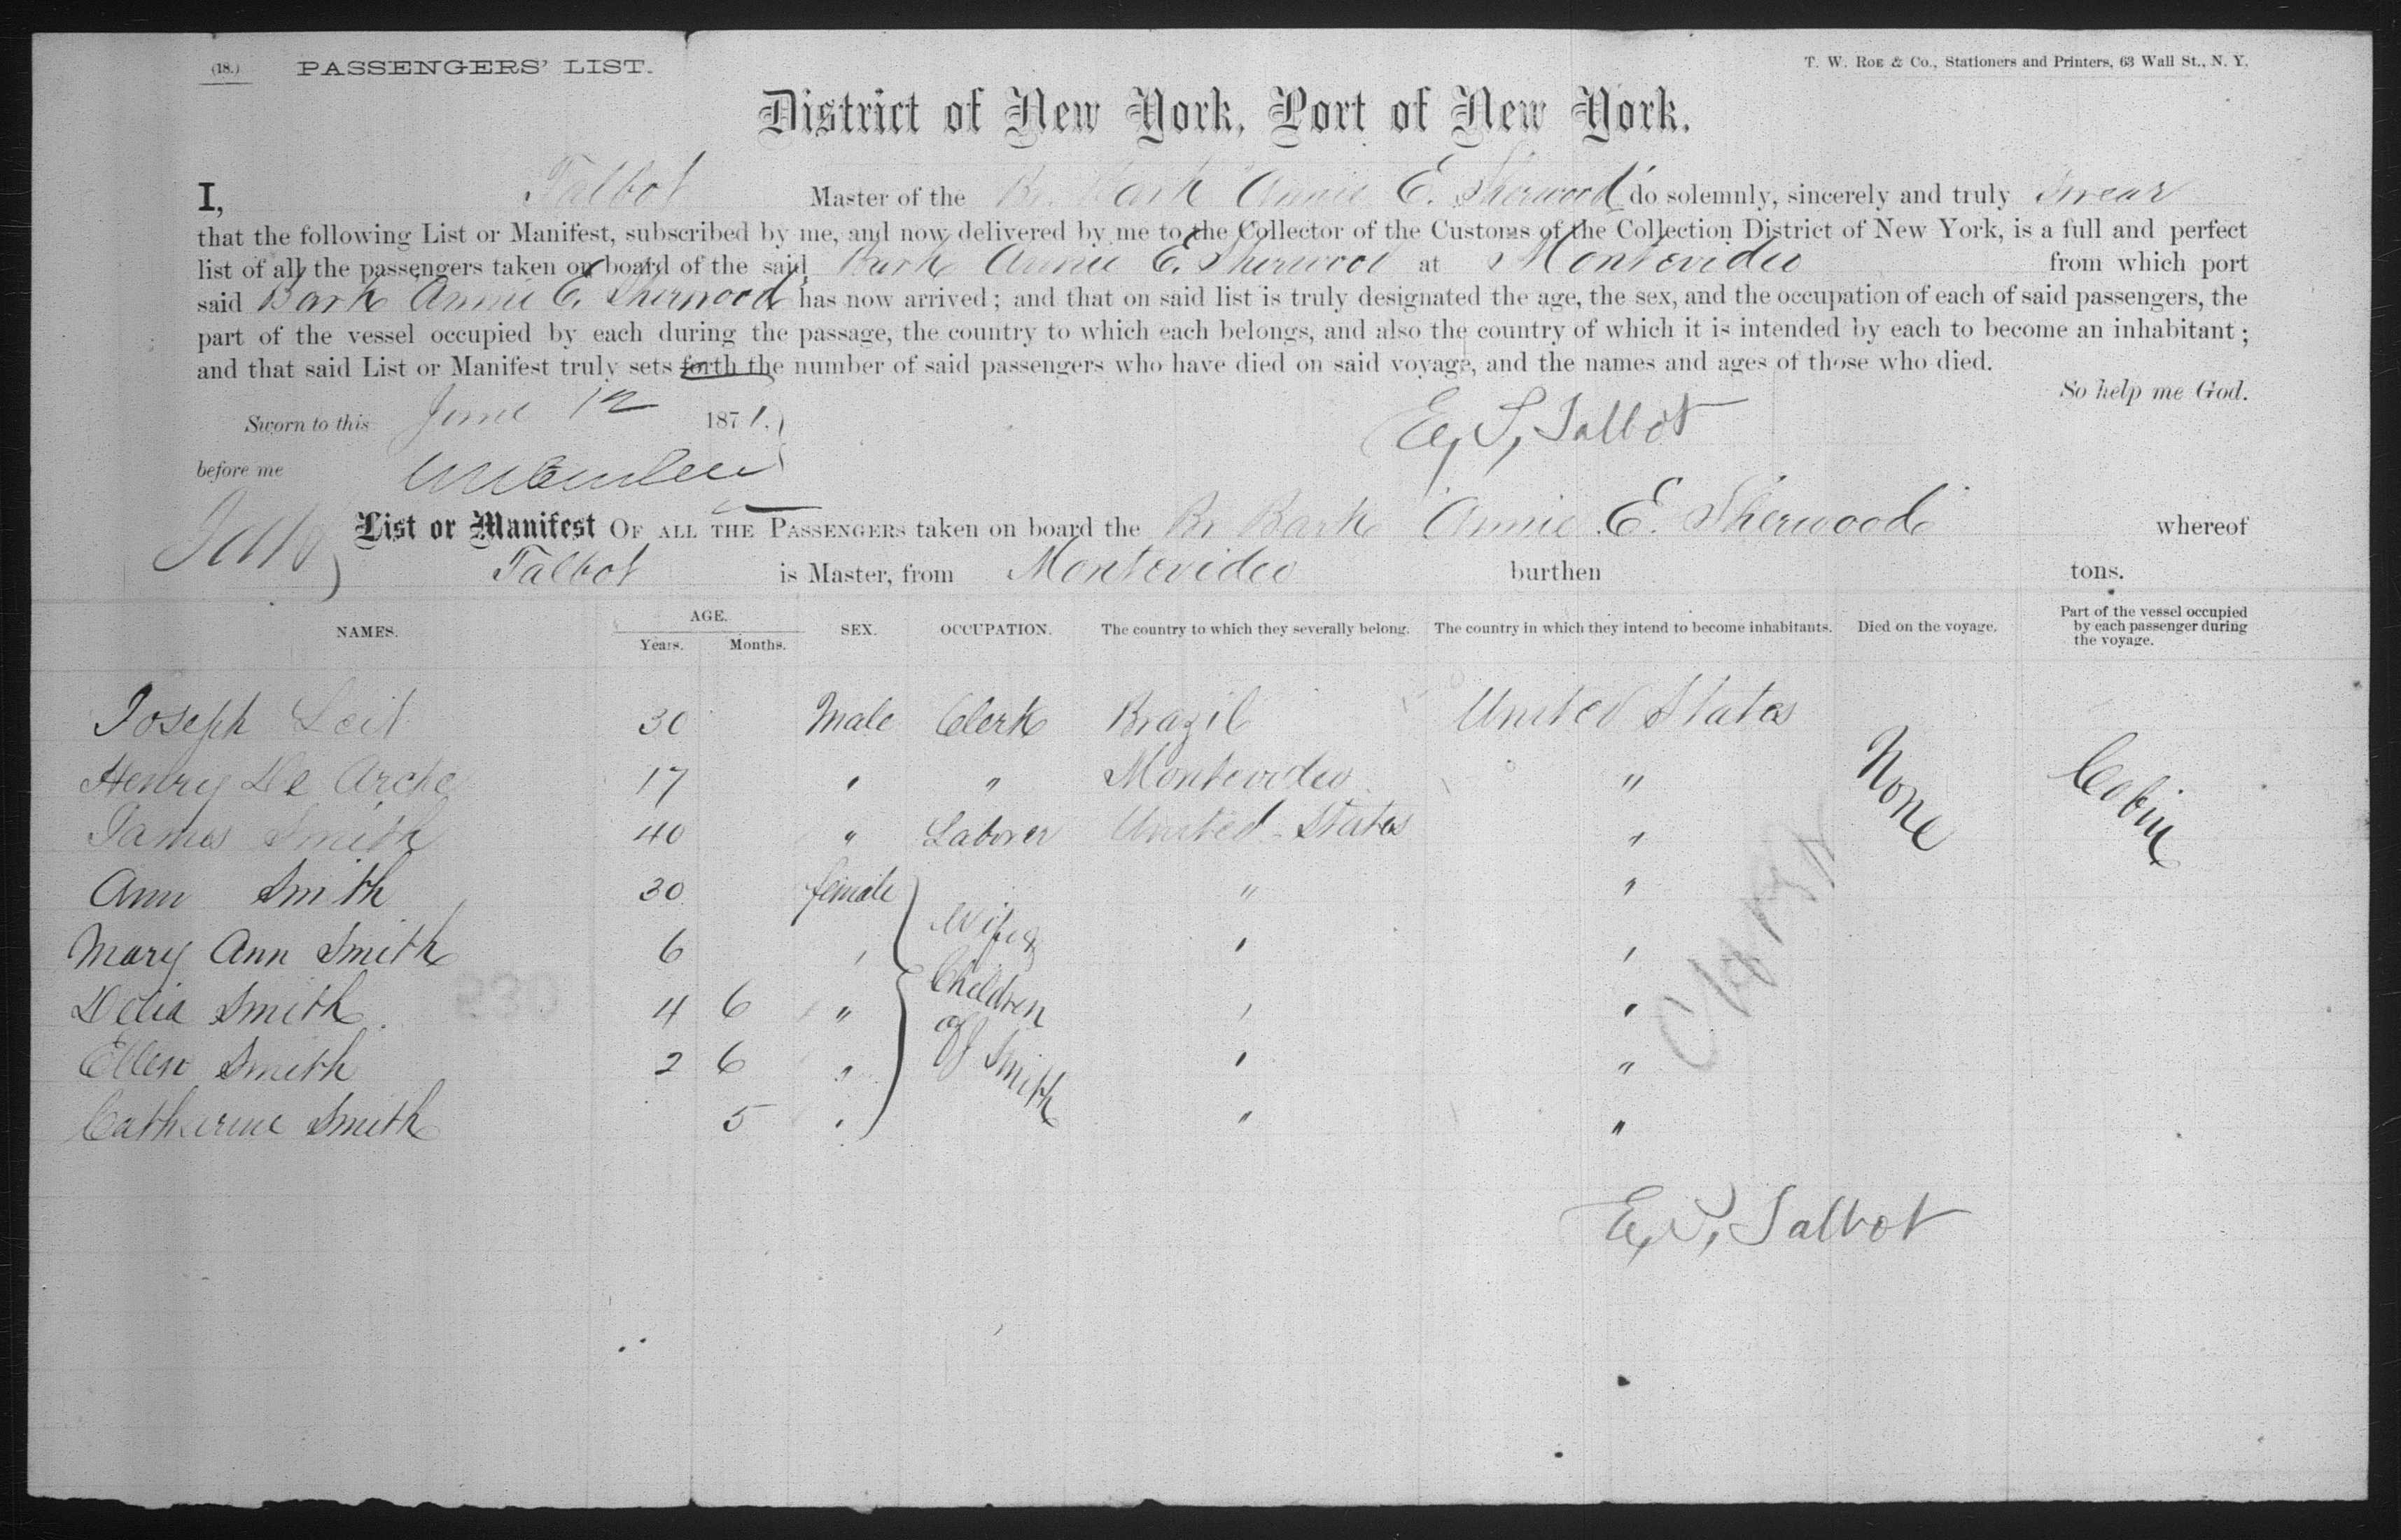 (18.) PASSENGERS' LIST. T. W. Roe & Co., Stationers and Printers, 63 Wall St., N. Y.
District of New York, Port of New York.
I, Talbot Master of the Br. Bark Annie E. Sherwood do solemnly, sincerely and truly swear
that the following List or Manifest, subscribed by me, and now delivered by me to the Collector of the Customs of the Collection District of New York, is a full and perfect
list of all the passengers taken on board of the said Bark Annie E. Sherwood at Montevideo from which port
said Bark Annie E. Sherwood has now arrived; and that on said list is truly designated the age, the sex, and the occupation of each of said passengers, the
part of the vessel occupied by each during the passage, the country to which each belongs, and also the country of which it is intended by each to become an inhabitant;
and that said List or Manifest truly sets forth the number of said passengers who have died on said voyage, and the names and ages of those who died.
So help me God.
Sworn to this June 12 1871.
E. S. Talbot
before me
List or Manifest OF ALL THE PASSENGERS taken on board the Br Bark Annie E. Sherwood whereof
Talbot is Master, from Montevideo burthen tons.
NAMES. AGE. Years. Months. SEX. OCCUPATION. The country to which they severally belong. The country in which they intend to become inhabitants. Died on the voyage. Part of the vessel occupied by each passenger during the voyage.
Joseph Leit 30 Male Clerk Brazil United States
Henry De Arche 17 " " Montevideo " None Cabin
James Smith 40 " Laborer United States "
Ann Smith 30 female " "
Mary Ann Smith 6 " Wife & " "
Delia Smith 4 6 " Children " "
Ellen Smith 2 6 " of Smith " "
Catherine Smith 5 " " "
E. S. Talbot